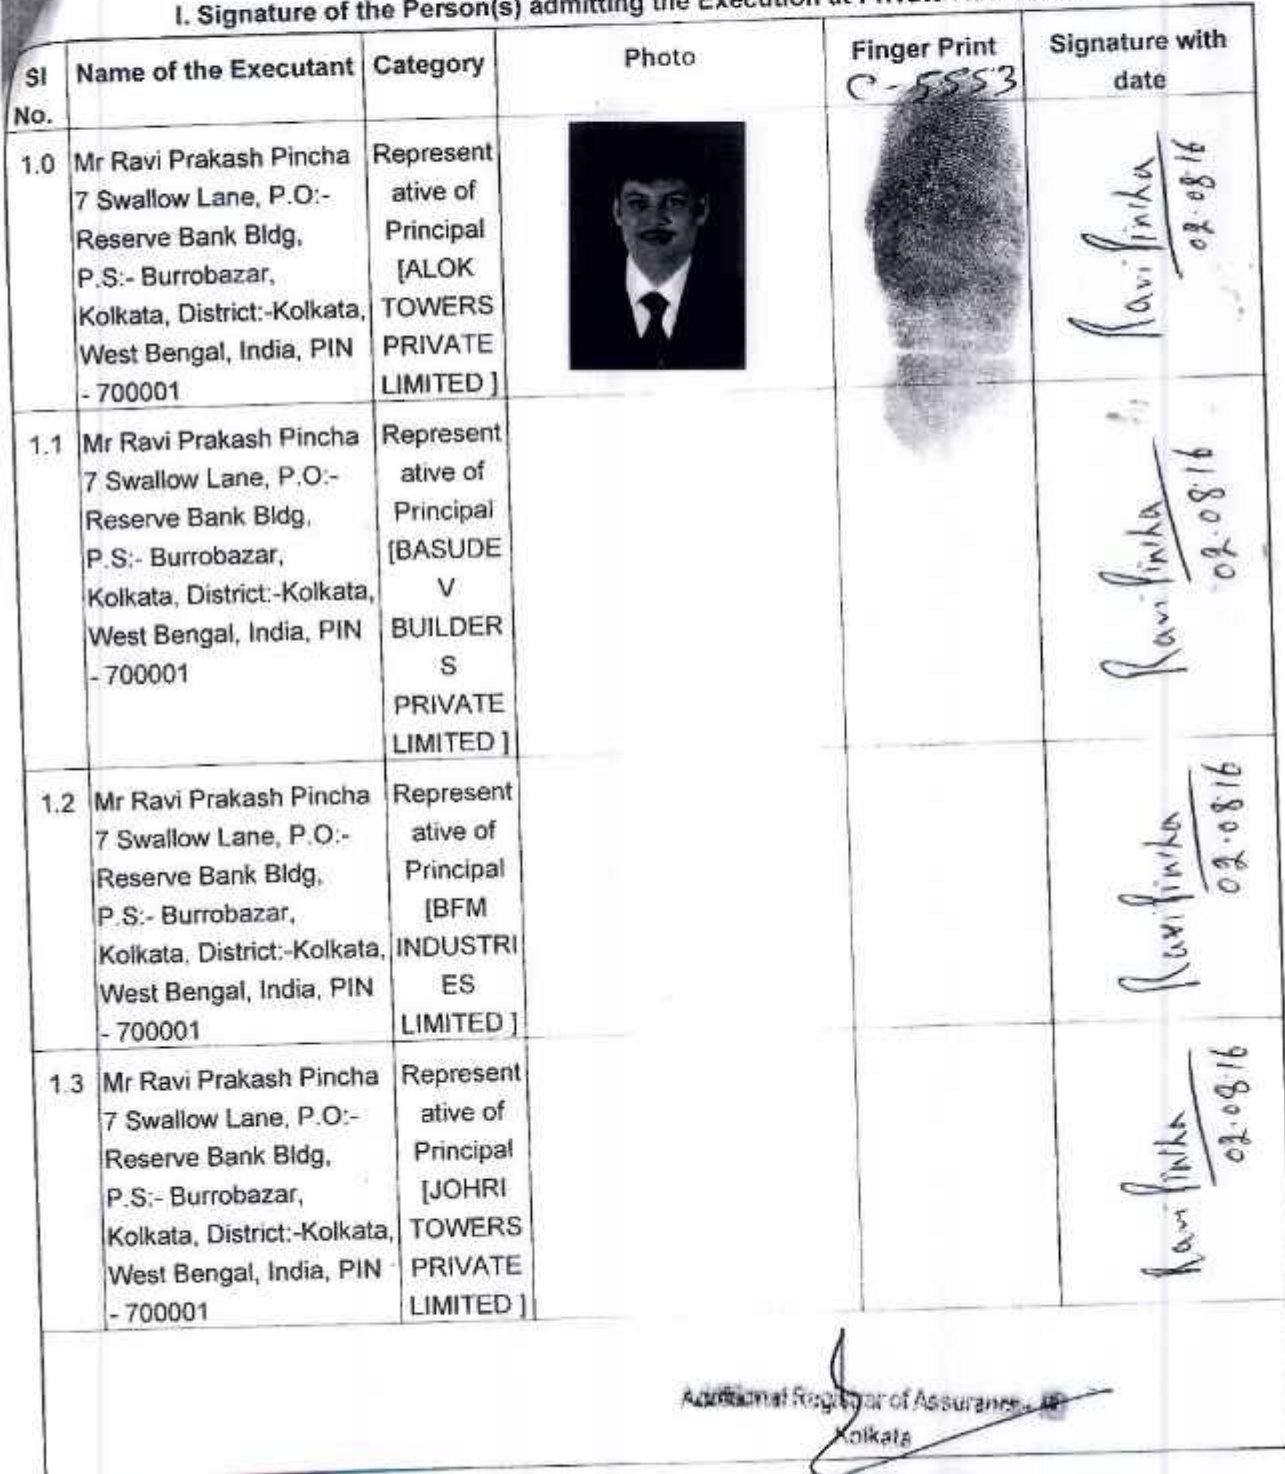 I. Signature of the Person(s) admitting the Execution at Private
Sl No.
Name of the Executant
Category
Photo
Finger Print
C-5553
Signature with date
1.0
Mr Ravi Prakash Pincha
7 Swallow Lane, P.O:-
Reserve Bank Bldg,
P.S:- Burrobazar,
Kolkata, District:-Kolkata,
West Bengal, India, PIN
- 700001
Represent
ative of
Principal
[ALOK
TOWERS
PRIVATE
LIMITED ]
Ravi Pincha
02.08.16
1.1
Mr Ravi Prakash Pincha
7 Swallow Lane, P.O:-
Reserve Bank Bldg,
P.S:- Burrobazar,
Kolkata, District:-Kolkata,
West Bengal, India, PIN
- 700001
Represent
ative of
Principal
[BASUDE
V
BUILDER
S
PRIVATE
LIMITED ]
Ravi Pincha
02.08.16
1.2
Mr Ravi Prakash Pincha
7 Swallow Lane, P.O:-
Reserve Bank Bldg,
P.S:- Burrobazar,
Kolkata, District:-Kolkata,
West Bengal, India, PIN
- 700001
Represent
ative of
Principal
[BFM
INDUSTRI
ES
LIMITED ]
Ravi Pincha
02.08.16
1.3
Mr Ravi Prakash Pincha
7 Swallow Lane, P.O:-
Reserve Bank Bldg,
P.S:- Burrobazar,
Kolkata, District:-Kolkata,
West Bengal, India, PIN
- 700001
Represent
ative of
Principal
[JOHRI
TOWERS
PRIVATE
LIMITED ]
Ravi Pincha
02.08.16
Additional Registrar of Assurance
Kolkata